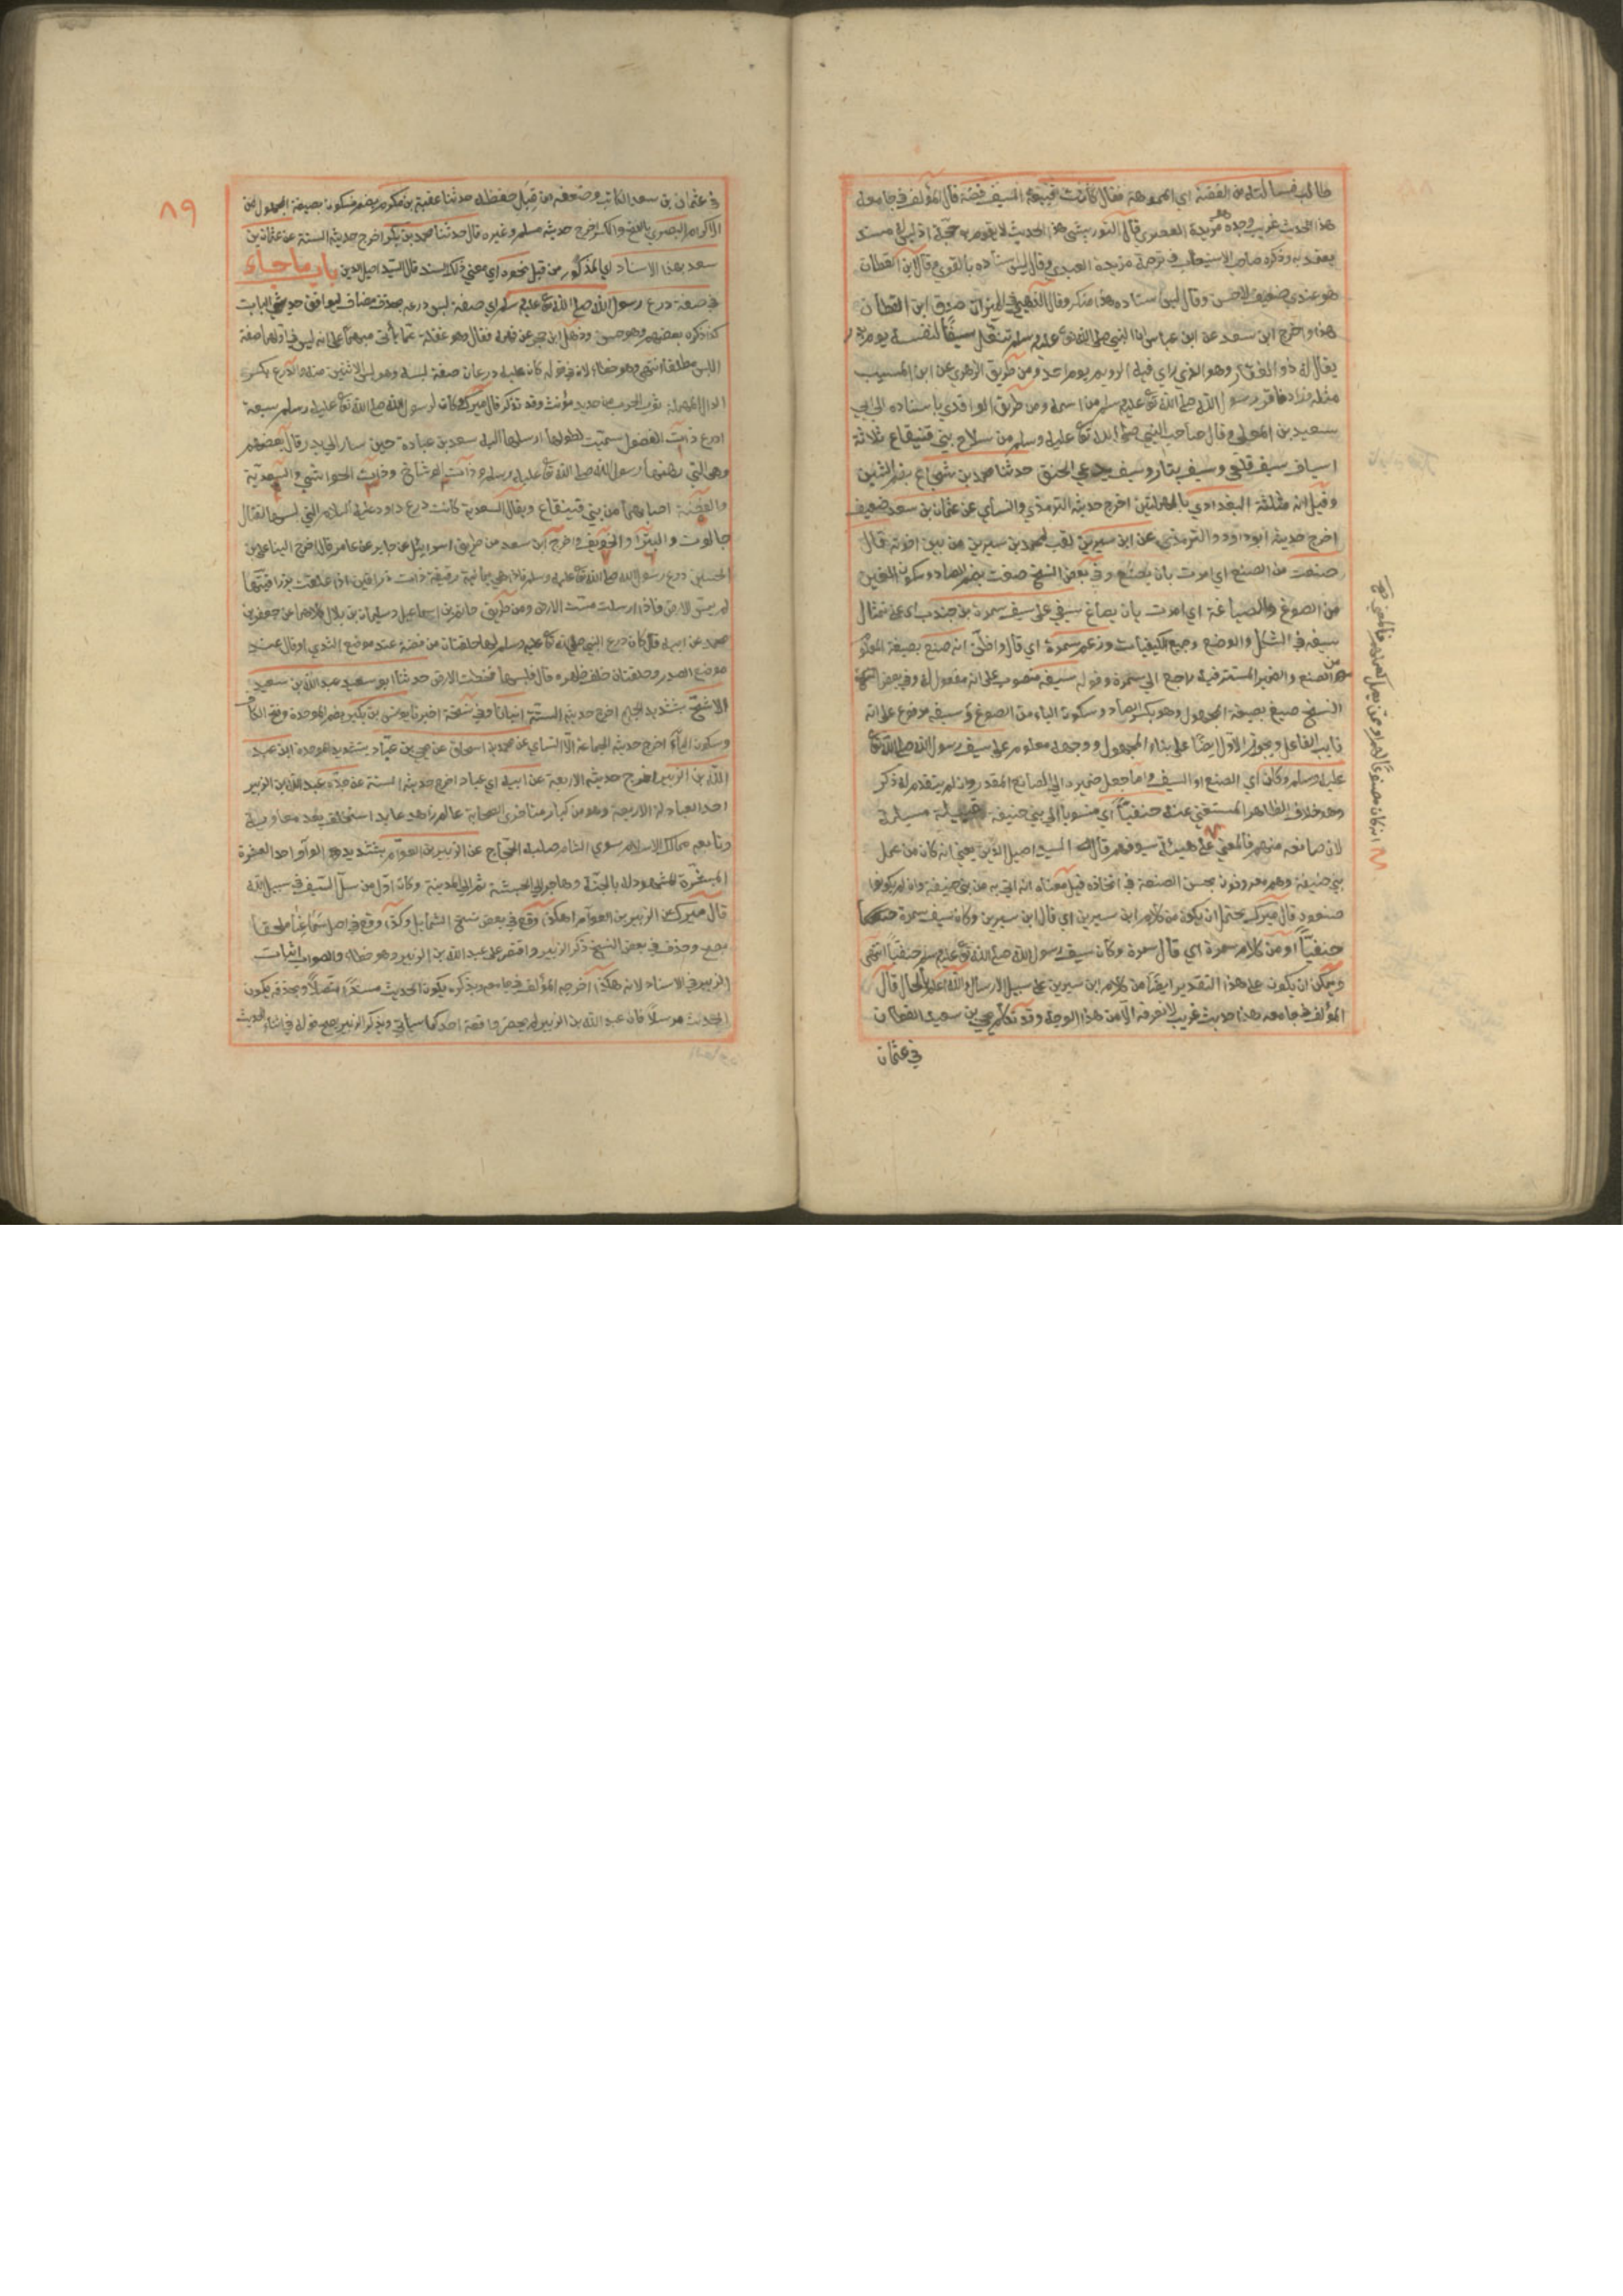 طالب فسالته عن الفضة اي المموهة فقال كانت قبيعة السيف فضة قال المؤلف في جامعه
هذا الحديث غريب وجده مزيدة العصري قال التوربشتي هذا الحديث لا يقوم به حجة اذ ليس له سند
يعتد به وذكره صاحب الاستيعاب في ترجمة مزيدة العبدي وقال ليس اسناده بالقوي وقال ابن القطان
هو عندي ضعيف لا حسن وقال ليس اسناده هذا منكر وقال الذهبي في الميزان صدق ابن القطان
هذا واخرج ابن سعد عن ابن عباس ان النبي صلى الله تع عليه وسلم تنفل سيفا لنفسه يوم بدر
يقال له ذو الفقار وهو الذي راي فيه الرويا يوم احد ومن طريق الزهري عن ابن المسيب
مثله وزاد فاقر رسول الله صلى الله تع عليه وسلم من اسمه ومن طريق الواقدي باسناده الى ابي
سعيد بن المعلى وقال صاحب النبي صلى الله تع عليه وسلم من سلاح بني قينقاع ثلاثة
اسياف سيف قلعي وسيف بتار وسيف يدعي الحتف حدثنا محمد بن شجاع بضم الشين
وقيل انه مثلثة البغدادي بالمهملتين اخرج حديثه الترمذي والنسأي عن عثمان بن سعد ضعيف
اخرج حديثه ابوداود والترمذي عن ابن سيرين لقب لمحمد بن سيرين من بين اخوته قال
صنعت من الصنع اي امرت بان يصنع وفي بعض النسخ صغت بضم الصاد وسكون الغين
من الصوغ والصياغة اي امرت بان يصاغ سيفي على سيف سمرة بن جندب اي على تمثال
سيفه في الشكل والوضع وجميع الكيفيات وزعم سمرة اي قال واظن انه صنع بصيغة المعلوم
من الصنع والضمير المستتر فيه راجع الى سمرة وقوله سيفه منصوب على انه مفعول له وفي بعض
النسخ صيغ بصيغة المجهول وهو بكسر الصاد وسكون الياء من الصوغ وسيفه مرفوع على انه
نايب الفاعل ويجوز الاول ايضا على بناء المجهول ووجهه معلوم على سيف رسول الله صلى الله تع
عليه وسلم وكان اي الصنع او السيف واما جعل ضميره الى الصانع المقدر وان لم يتقدم له ذكر
وهو خلاف الظاهر المستغني عنه حنفيا اي منسوبا الي بني حنيفة قبيلة مسيلمة
لان صانعه منهم فالمعني على هيئة سيوفهم قال السيد اصيل الدين يعني انه كان من عمل
بني حنيفة وهم معروفون بحسن الصنعة في اتخاذه قيل معناه انه اتي به من بني حنيفة وان لم يكونوا
صنعوه قال ميرك يحتمل ان يكون من كلام ابن سيرين اي قال ابن سيرين وكان سيف سمرة
حنفيا او من كلام سمرة اي قال سمرة وكان سيف رسول الله صلى الله تع عليه وسلم حنفيا انتهى
ويمكن ان يكون على هذا التقدير ايضا من كلام ابن سيرين على سبيل الارسال والله اعلم بالحال قال
المؤلف في جامعه هذا حديث غريب لا نعرفه الا من هذا الوجه وقد تكلم يحيي بن سعيد القطان
في عثمان
٨٩
في عثمان بن سعد الكاتب وضعفه من قبل حفظه حدثنا عقبة بن مكرم بضم فسكون بصيغة المجهول من
الاكرام البصري بالفتح والكسر اخرج حديثه مسلم وغيره قال حدثنا محمد بن بكر اخرج حديثه الستة عن عثمان بن
سعد بهذا الاسناد اي المذكور من قبل نحوه اي معني ذلك السند قال السيد اصيل الدين باب ما جاء
في صفة درع رسول الله صلى الله تع عليه وسلم اي صفة لبس درعه بحذف مضاف ليوافق حديثي الباب
كذا ذكره بعضهم وهو حسن وذهل ابن حجر عن فهمه فقال وهو غفلة عما ياتي مبهما على انه ليس فيها صفة
اللبس مطلقا انتهى وهو خطأ لان في قوله كان عليه درعان صفة لبسه وهو لبس الاثنين منه والدرع بكسر
الدال المهملة ثوب الحرب من حديد مؤنث وقد تذكر قال ميرك كان لرسول الله صلى الله تع عليه وسلم سبعة
ادرع ذات الفضول سميت لطولها ارسلها اليه سعد بن عبادة حين سار الى بدر قال بعضهم
وهي التي رهنها رسول الله صلى الله تع عليه وسلم وذات الوشاح وذات الحواشي والسعدية
والفضة اصابهما من بني قينقاع ويقال السعدية كانت درع داود عليه السلام التي لبسها لقتال
جالوت والبترا والخرنق واخرج ابن سعد من طريق اسرائيل عن جابر عن عامر قال اخرج الينا علي بن
الحسين درع رسول الله صلى الله تع عليه وسلم فاذا هي يمانية رقيقة ذات زرافين اذا علقت بزرافينها
لم يمس الارض فاذا ارسلت مست الارض ومن طريق حاتم بن اسماعيل وسليمان بن بلال كلاهما عن جعفر بن
محمد عن ابيه قال كان درع النبي صلى الله تع عليه وسلم لها حلقتان من فضة عند موضع الثدي او قال عند
موضع الصدر وحلقتان خلف ظهره قال فلبسها فخطت الارض حدثنا ابو سعيد عبد الله بن سعيد
الاشج بتشديد الجيم اخرج حديثه الستة انبانا وفي نسخة اخبرنا يونس بن بكير بضم الموحدة وفتح الكاف
وسكون الياء اخرج حديثه الجماعة الا النساي عن محمد بن اسحاق عن يحيي بن عباد بتشديد الموحدة ابن عبد
الله بن الزبير اخرج حديثه الاربعة عن ابيه اي عباد اخرج حديثه الستة عن جده عبد الله بن الزبير
احد العبادلة الاربعة وهو من كبار متاخري الصحابة عالم زاهد عابد استخلف بعد معاوية
وتابعه ممالك الاسلام سوي الشام صلبه الحجاج عن الزبير بن العوام بتشديد الواو احد العشرة
المبشرة المشهود له بالجنة وهاجر الى الحبشة ثم الى المدينة وكان اول من سل السيف في سبيل الله
قال ميرك عن الزبير بن العوام هكذا وقع في بعض نسخ الشمايل وكذا وقع في اصل سماعنا ملحقا
بصح وحذف في بعض النسخ ذكر الزبير واقتصر على عبد الله بن الزبير وهو خطاء والصواب اثبات
الزبير في الاسناد لانه هكذا اخرجه المؤلف في جامعه وبذكره يكون الحديث مسندا متصلا وبحذفه يكون
الحديث مرسلا فان عبد الله بن الزبير لم يحضر واقعة احد كما سياتي وبذكر الزبير يصح قوله في اثناء الحديث